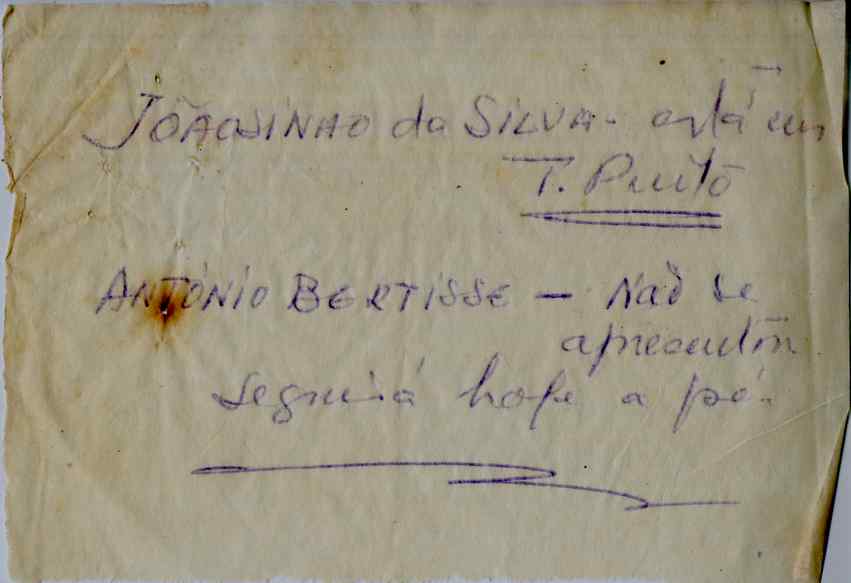 JOÃOSINHO da SILVA - está em
T. Puitó
ANTÓNIO BERTISSE - Não se
apresentou
Seguirá hoje a pé.